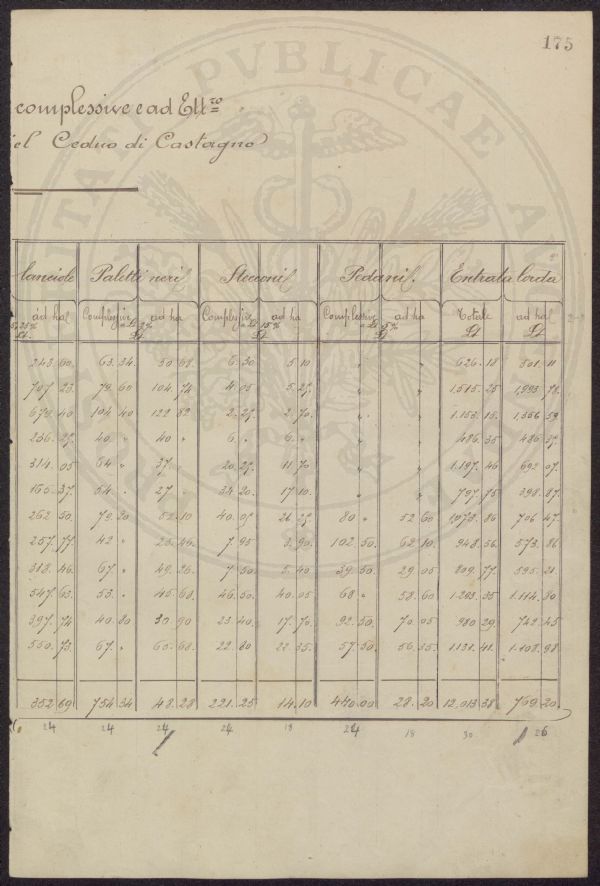 175
PVBLICAE
complessive e ad Ett.ro
el Ceduo di Castagno
lanciole Paletti neri Stecconi Pedani Entrata lorda
ad ha Complessive ad ha Complessive ad ha Complessive ad ha Totale ad ha
243.60 63.34 50.68 6.30 5.10 " " 626.18 501.11
707.23 79.60 104.74 4.05 5.27 " " 1,515.25 1,993.78
679.40 104.40 122.82 2.27 2.70 " " 1.153.15 1,356.59
236.27 40 " 40 " 6 " 6 " " " 486.35 486.37
314.05 64 " 37 20.27 11.70 " " 1.197.46 692.07
165.37 54 27 " 34.20 17.10 " " 797.75 398.87
262.50 79.20 52.10 40.05 26.27 80 " 52.60 1,073.86 706.47
257.77 42 " 25.45 7.95 3.90 102.50 62.10 948.56 573.86
318.46 67 " 49.26 7.50 5.40 39.50 29.05 809.77 595.21
547.63 53 " 45.68 46.50 40.05 68 " 58.60 1.283.35 1.114.80
397.74 40.80 30.90 23.40 17.70 92.50 70.05 980.29 742.45
550.73 67 " 65.68 22.80 22.35 57.50 56.35 1131.41 1.108.98
352.69 754.34 48.28 221.25 14.10 440.00 28.20 12.013.38 769.20
24 24 24 24 18 24 18 30 26